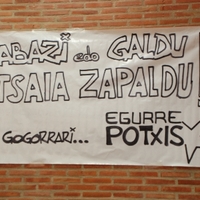 ABAZI edo GALDU
TSAIA ZAPALDU!
GOGORRARI...
EGURRE
POTXIS